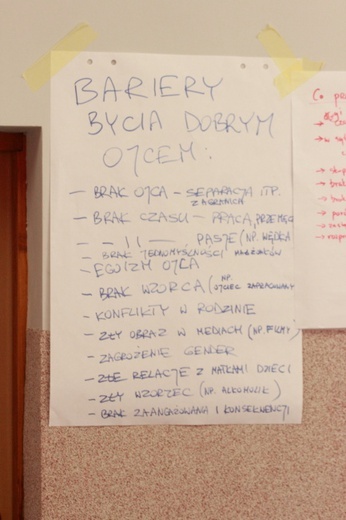 BARIERY
BYCIA DOBRYM
OJCEM:
- BRAK OJCA - SEPARACJA ITP.
ZAGRANICA
- BRAK CZASU - PRACA, PRZEMĘCZ
- - 11 - PASJE (NP. WĘDKA
- BRAK JEDNOMYŚLNOŚCI MAŁŻONKÓW
- EGOIZM OJCA
- BRAK WZORCA (NP. OJCIEC ZAPRACOWANY
- KONFLIKTY W RODZINIE
- ZŁY OBRAZ W MEDIACH (NP. FILMY)
- ZAGROŻENIE GENDER
- ZŁE RELACJE Z MATKAMI DZIECI
- ZŁY WZORZEC (NP. ALKOHOLIK)
- BRAK ZAANGAŻOWANIA I KONSEKWENCJI
Co